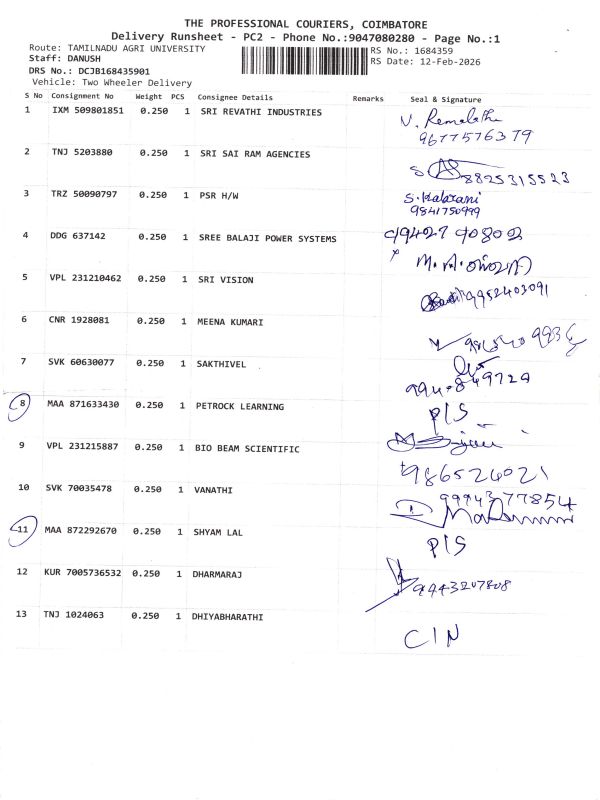 THE PROFESSIONAL COURIERS, COIMBATORE
Delivery Runsheet - PC2 - Phone No.:9047080280 - Page No.:1
Route: TAMILNADU AGRI UNIVERSITY
RS No.: 1684359
Staff: DANUSH
RS Date: 12-Feb-2026
DRS No.: DCJB168435901
Vehicle: Two Wheeler Delivery
S No Consignment No Weight PCS Consignee Details Remarks Seal & Signature
1 IXM 509801851 0.250 1 SRI REVATHI INDUSTRIES
9677576379
2 TNJ 5203880 0.250 1 SRI SAI RAM AGENCIES
8825315523
3 TRZ 50090797 0.250 1 PSR H/W S. Kalarani
9841750999
4 DDG 637142 0.250 1 SREE BALAJI POWER SYSTEMS
5 VPL 231210462 0.250 1 SRI VISION
9952403091
6 CNR 1928081 0.250 1 MEENA KUMARI
7 SVK 60630077 0.250 1 SAKTHIVEL
8 MAA 871633430 0.250 1 PETROCK LEARNING P/S
9 VPL 231215887 0.250 1 BIO BEAM SCIENTIFIC
986524021
10 SVK 70035478 0.250 1 VANATHI 9994377854
11 MAA 872292670 0.250 1 SHYAM LAL P/S
12 KUR 7005736532 0.250 1 DHARMARAJ 9943207808
13 TNJ 1024063 0.250 1 DHIYABHARATHI
C/N